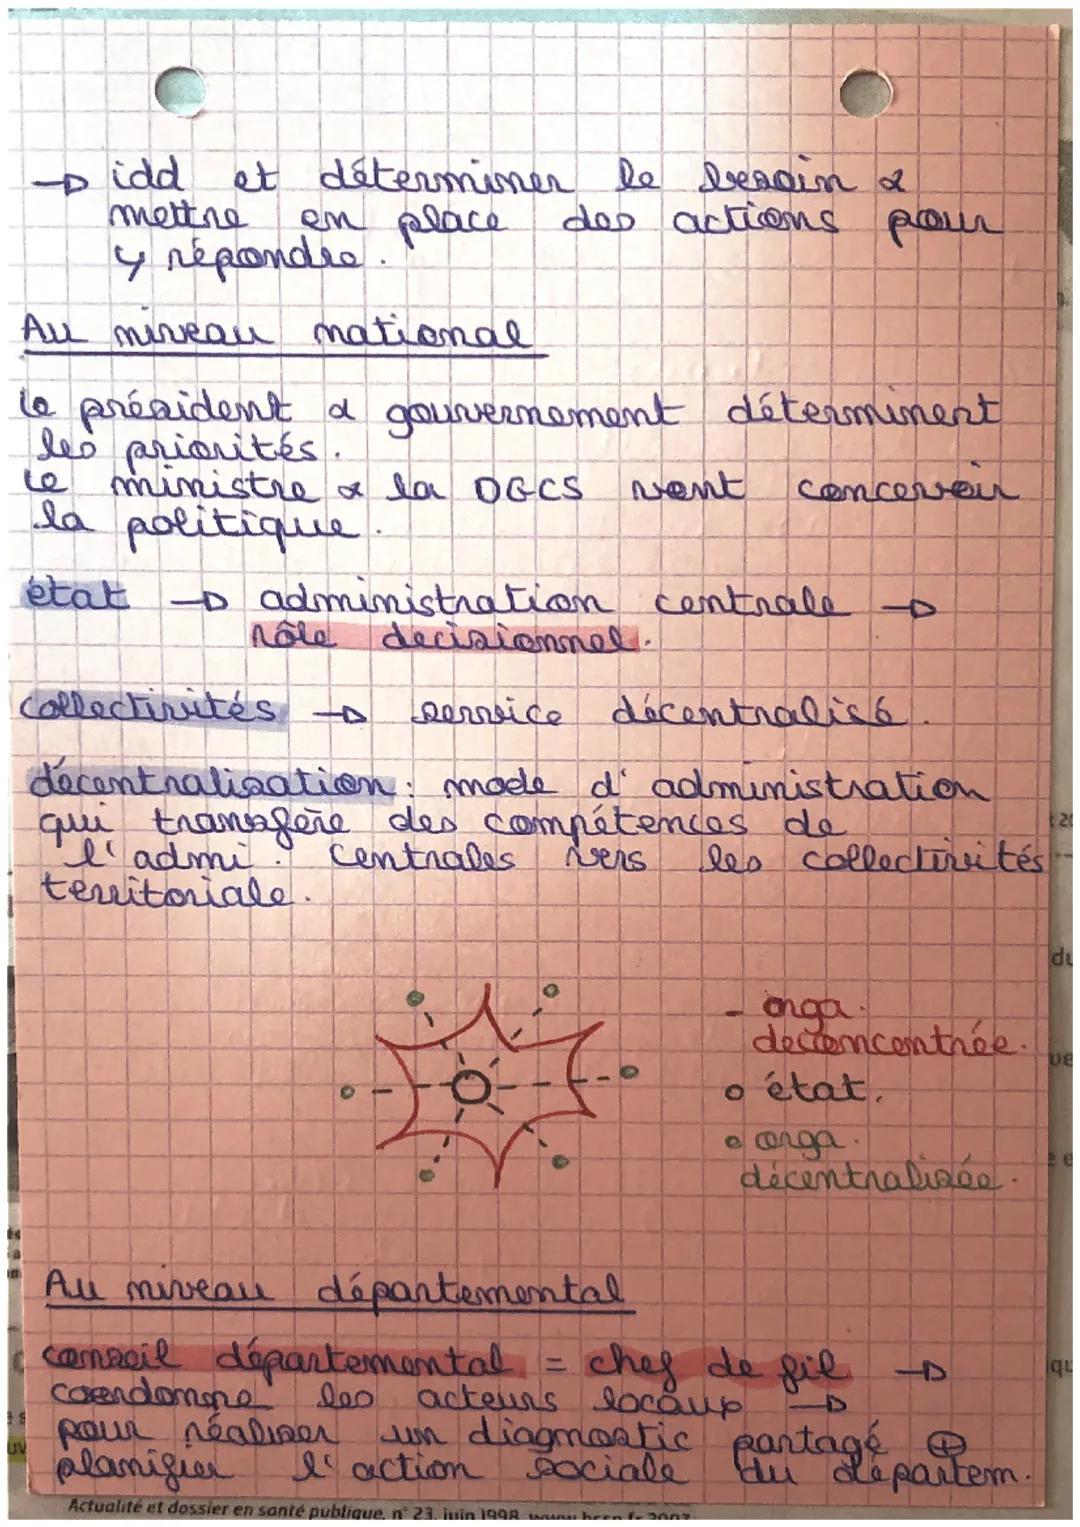 → idd et déterminer le besoin &
mettre en place des actions pour
y répondre.
Au niveau national
le président & gouvernement déterminent
les priorités.
Le ministre & la DGCS vont concevoir
la politique.
état → administration centrale →
rôle decisionnel.
collectivités → service décentralisé.
décentralisation : mode d'administration
qui transfère des compétences de
l'admi. centrales vers les collectivités
territoriale.
- orga.
deconcentrée.
o état.
o orga.
décentralisée.
Au niveau départemental
conseil départemental = chef de fil →
coordonne les acteurs locaux →
pour réaliser un diagnostic partagé ⊕
planifier l'action sociale du départem.
Actualité et dossier en santé publique, n° 23, juin 1998